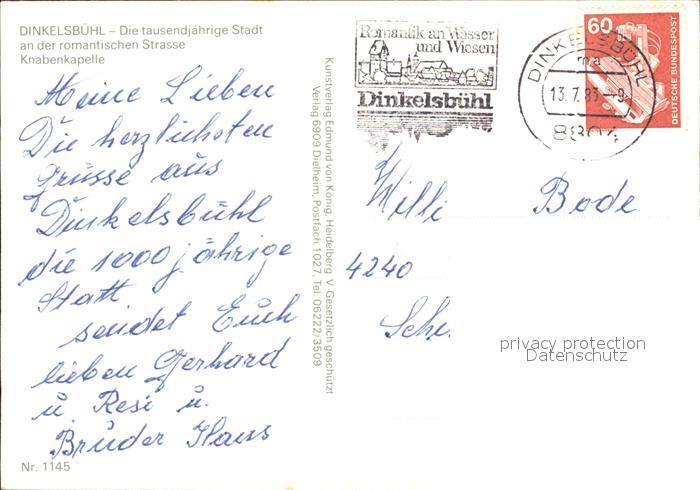 DINKELSBÜHL – Die tausendjährige Stadt
an der romantischen Strasse
Knabenkapelle
Meine Lieben
Die herzlichsten
Grüsse aus
Dinkelsbühl
die 1000 jährige
Statt
sendet Euch
lieben Gerhard
u Resi u.
Bruder Hans
Nr. 1145
Kunstverlag Edmund von König, Heidelberg V Gesetzlich geschützt
Verlag 6909 Dielheim, Postfach 1027, Tel. 06222/3509
Romantik an Wasser
und Wiesen
Dinkelsbühl
DINKELSBÜHL
ma
13.7.83-9
8804
60
DEUTSCHE BUNDESPOST
Willi Bode
4240
Sche.
privacy protection
Datenschutz